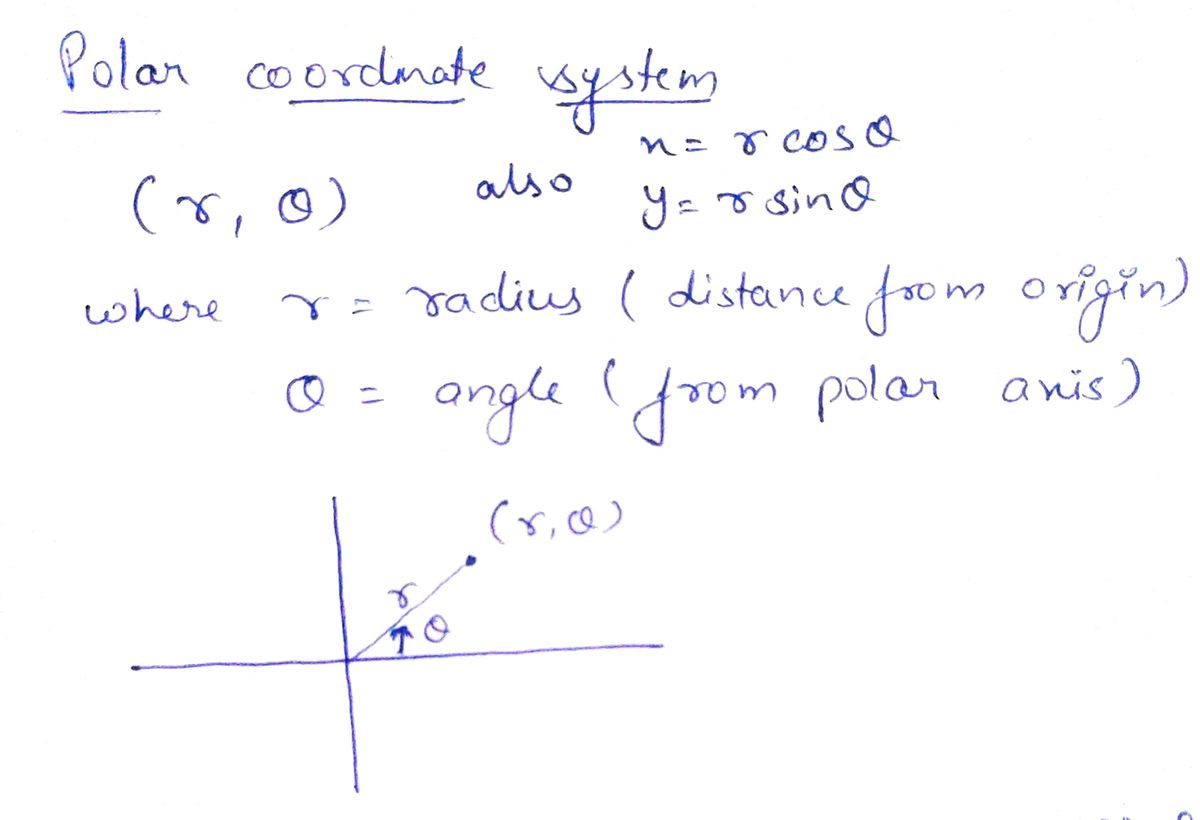 Polar coordinate system
x = r cosθ
(r, θ) also y = r sinθ
where r = radius (distance from origin)
θ = angle (from polar axis)
(r, θ)
r
θ